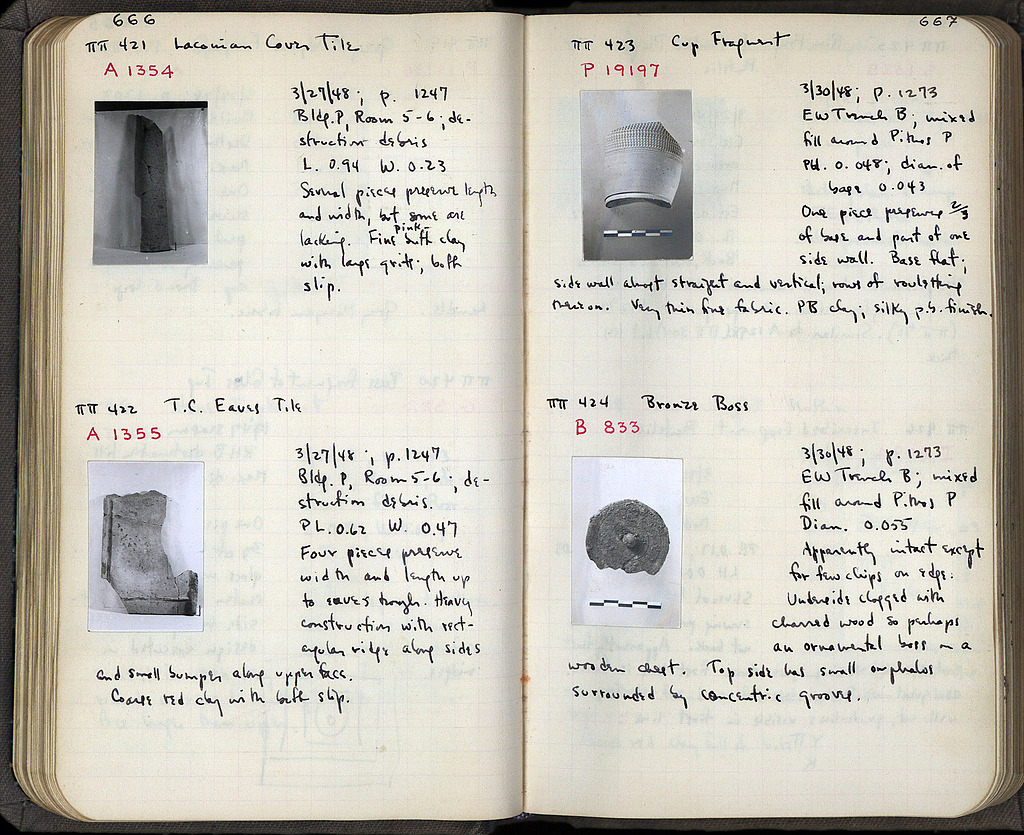 666
ΠΠ 421 Laconian Cover Tile
A 1354
3/27/48; p. 1247
Bldg. P, Room 5-6; de-
struction debris
L. 0.94 W. 0.23
Several pieces preserve length
and width, but some are
lacking. Fine pink-buff clay
with large grits; buff
slip.
ΠΠ 422 T.C. Eaves Tile
A 1355
3/27/48; p. 1247
Bldg. P, Room 5-6; de-
struction debris.
P L. 0.62 W. 0.47
Four pieces preserve
width and length up
to eaves trough. Heavy
construction with rect-
angular ridge along sides
and small bumper along upper face.
Coarse red clay with buff slip.
667
ΠΠ 423 Cup Fragment
P 19197
3/30/48; p. 1273
EW Trench B; mixed
fill around Pithos P
PH. 0.048; diam. of
base 0.043
One piece preserves 2/3
of base and part of one
side wall. Base flat;
side wall almost straight and vertical; rows of rouletting
thereon. Very thin fine fabric. PB clay; silky p.b. finish.
ΠΠ 424 Bronze Boss
B 833
3/30/48; p. 1273
EW Trench B; mixed
fill around Pithos P
Diam. 0.055
Apparently intact except
for few chips on edge.
Underside clogged with
charred wood so perhaps
an ornamental boss on a
wooden chest. Top side has small omphalos
surrounded by concentric groove.